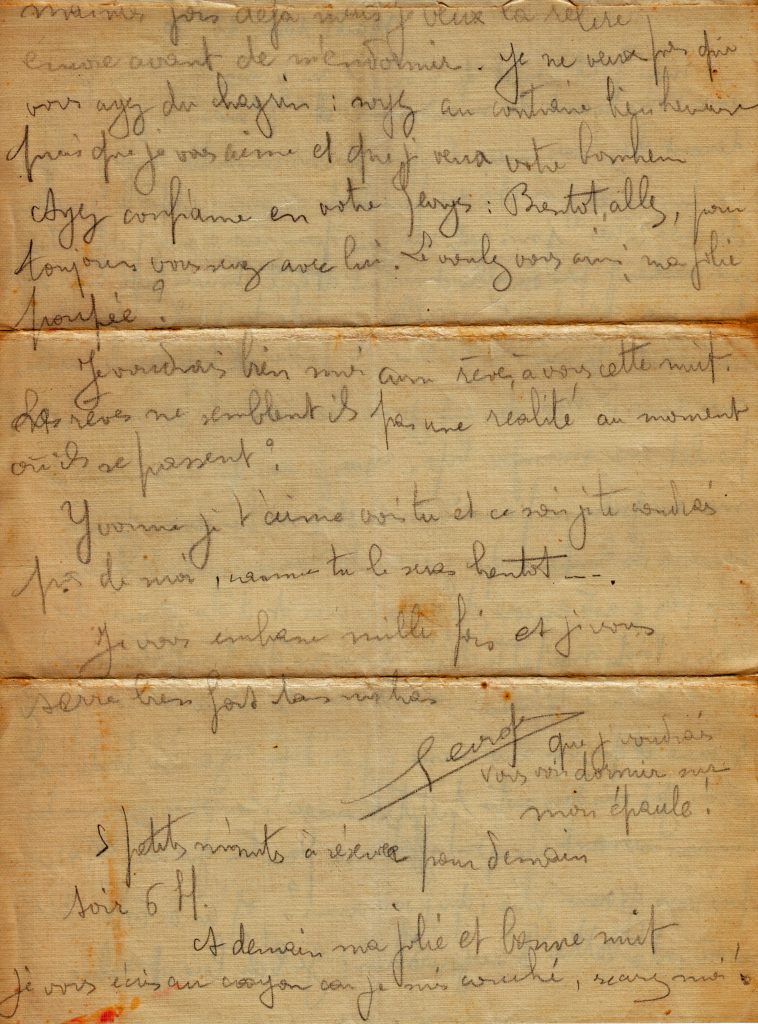 maintes fois déjà mais je veux la relire
encore avant de m'endormir. Je ne veux pas que
vous ayez du chagrin : soyez au contraire bien heureuse
puisque je vous aime et que je veux votre bonheur
Ayez confiance en votre Georges : Bientot, allez, pour
toujours vous serez avec lui. Le voulez vous ainsi, ma jolie
poupée ?
Je voudrais bien moi aussi rêver à vous cette nuit.
Les rêves ne semblent ils pas une réalité au moment
où ils se passent ?
Yvonne je t'aime vois tu et ce soir je te voudrais
près de moi, comme tu le seras bientot ---.
Je vous embrasse mille fois et je vous
serre bien fort dans mes bras
Georges
que je voudrais
vous voir dormir sur
mon épaule !
5 petits minuts à réserver pour demain
soir 6 H.
A demain ma jolie et bonne nuit
Je vous écris au crayon car je suis couché, excusez moi !